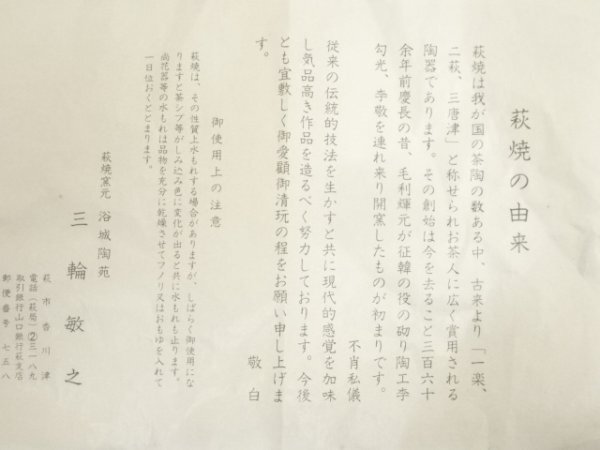 萩焼の由来
萩焼は我が国の茶陶の数ある中、古来より「一楽、
二萩、三唐津」と称せられお茶人に広く賞用される
陶器であります。その創始は今を去ること三百六十
余年前慶長の昔、毛利輝元が征韓の役の砌り陶工李
勾光、李敬を連れ来り開窯したものが初まりです。
不肖私儀
従来の伝統的技法を生かすと共に現代的感覚を加味
し気品高き作品を造るべく努力しております。今後
とも宜敷しく御愛顧御清玩の程をお願い申し上げま
す。
敬白
御使用上の注意
萩焼は、その性質上水もれする場合がありますが、しばらく御使用にな
りますと茶シブ等がしみ込み色に変化が出ると共に水もれも止ります。
尚花器等の水もれは品物を充分に乾燥させてフノリ又はおもゆを入れて
一日位おくととまります。
萩焼窯元 浴城陶苑
三輪敏之
萩市香川津
電話(萩局)②三一八九
取引銀行山口銀行萩支店
郵便番号 七五八